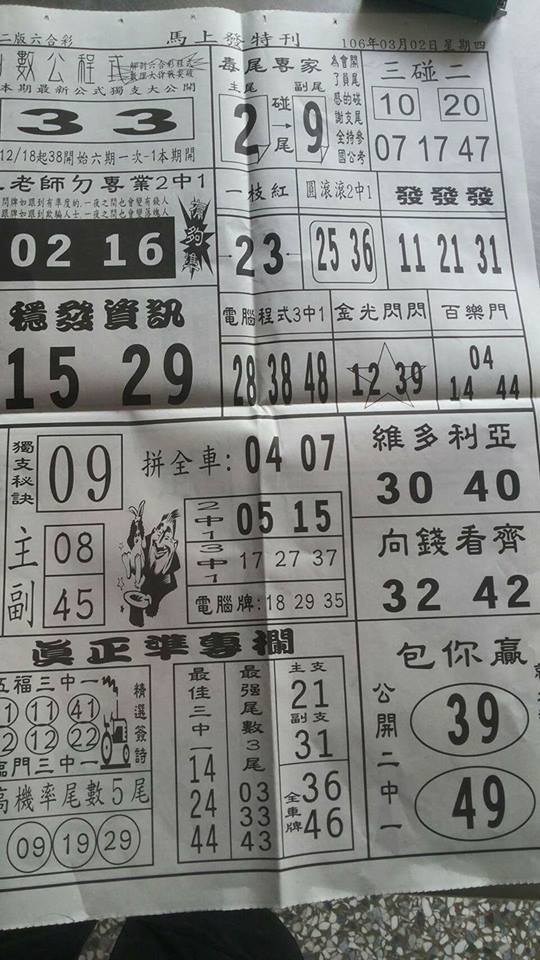 二版六合彩
馬上發特刊
106年03月02日星期四
數公程式
本期最新公式獨支大公開
33
12/18起38開始六期一次-1本期開
毒尾專家
主尾
副尾
2
碰
→
尾
9
三碰二
10 20
07 17 47
老師力專業2中1
02 16
夠準
一枝紅
23
圓滚滚2中1
25 36
發發發
11 21 31
穩發資訊
15 29
電腦程式3中1
28 38 48
金光閃閃
12 39
百樂門
04
14 44
獨支秘訣
09
拼全車: 04 07
主
08
副
45
2中1
05 15
3中1
17 27 37
電腦牌: 18 29 35
維多利亞
30 40
向錢看齊
32 42
真正準專欄
五福三中一
1 11 41
2 12 22
精選簽詩
臨門三中一
高機率尾數5尾
09 19 29
最佳三中一
14
24
44
最强尾數3尾
03
33
43
主支
21
副支
31
全車牌
36
46
包你贏
公開二中一
39
49